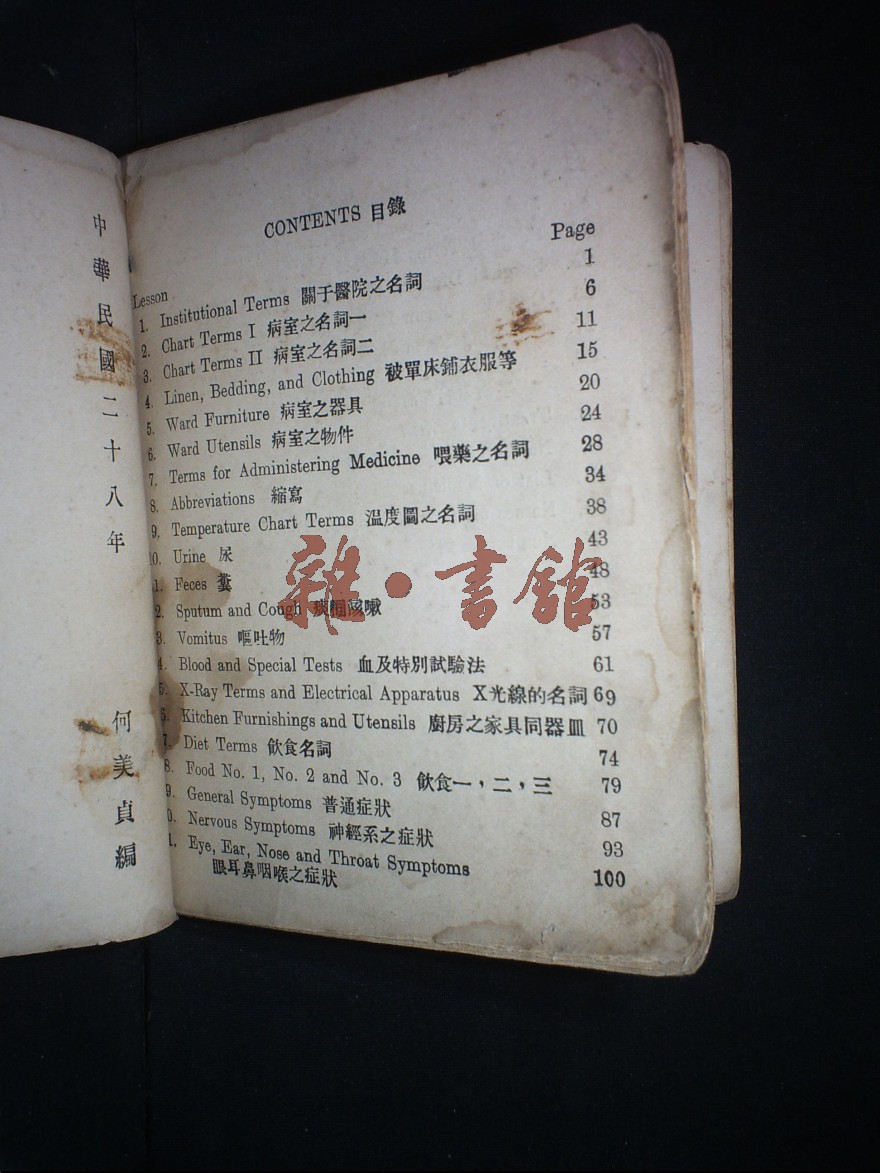 中華民國二十八年
何美貞編
CONTENTS 目錄
Lesson Page
1. Institutional Terms 關于醫院之名詞 1
2. Chart Terms I 病室之名詞一 6
3. Chart Terms II 病室之名詞二 11
4. Linen, Bedding, and Clothing 被單床鋪衣服等 15
5. Ward Furniture 病室之器具 20
6. Ward Utensils 病室之物件 24
7. Terms for Administering Medicine 喂藥之名詞 28
8. Abbreviations 縮寫 34
9. Temperature Chart Terms 溫度圖之名詞 38
10. Urine 尿 43
1. Feces 糞 48
2. Sputum and Cough 痰同咳嗽 53
3. Vomitus 嘔吐物 57
4. Blood and Special Tests 血及特別試驗法 61
5. X-Ray Terms and Electrical Apparatus X光線的名詞 69
6. Kitchen Furnishings and Utensils 廚房之家具同器皿 70
7. Diet Terms 飲食名詞 74
8. Food No. 1, No. 2 and No. 3 飲食一，二，三 79
9. General Symptoms 普通症狀 87
0. Nervous Symptoms 神經系之症狀 93
1. Eye, Ear, Nose and Throat Symptoms
眼耳鼻咽喉之症狀 100
雜·書館